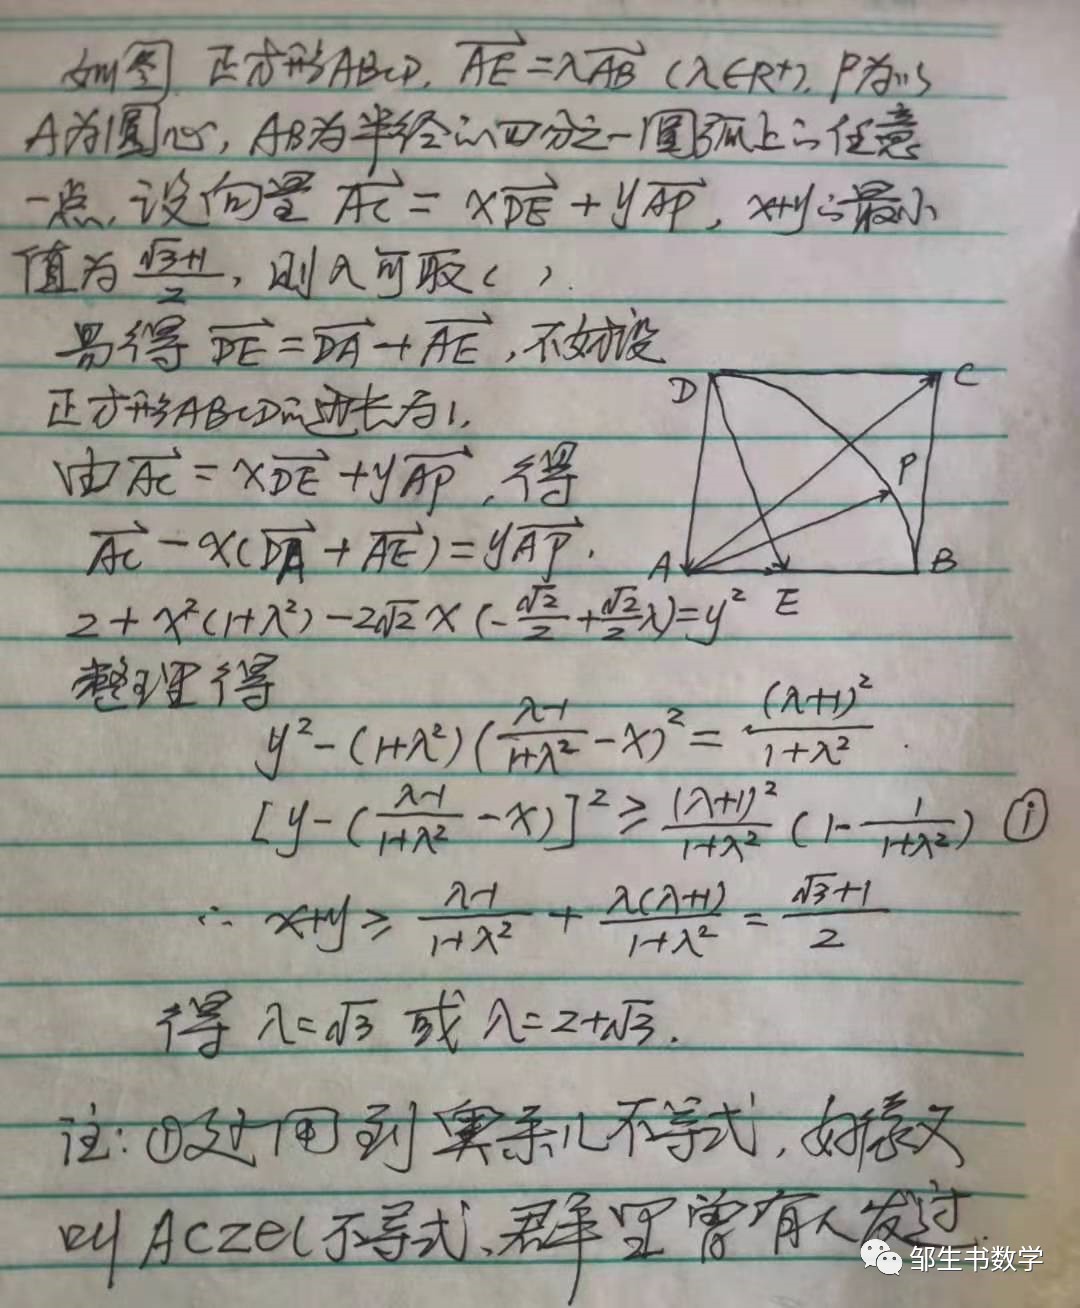 如图,正方形ABCD,$\overrightarrow{AE}=\lambda\overrightarrow{AB}$ (λ∈R⁺),P为以
A为圆心,AB为半径的四分之一圆弧上的任意
一点,设向量 $\overrightarrow{AC}=x\overrightarrow{DE}+y\overrightarrow{AP}$,x+y的最小
值为$\frac{\sqrt{3}+1}{2}$,则λ可取( ).
易得 $\overrightarrow{DE}=\overrightarrow{DA}+\overrightarrow{AE}$,不妨设
正方形ABCD的边长为1,
由$\overrightarrow{AC}=x\overrightarrow{DE}+y\overrightarrow{AP}$,得
$\overrightarrow{AC}-x(\overrightarrow{DA}+\overrightarrow{AE})=y\overrightarrow{AP}$.
$2+x^2(1+\lambda^2)-2\sqrt{2}x(-\frac{\sqrt{2}}{2}+\frac{\sqrt{2}}{2}\lambda)=y^2$
D C P A B E
整理得
$y^2-(1+\lambda^2)(\frac{\lambda-1}{1+\lambda^2}-x)^2=\frac{(\lambda+1)^2}{1+\lambda^2}$.
$[y-(\frac{\lambda-1}{1+\lambda^2}-x)]^2\geq\frac{(\lambda+1)^2}{1+\lambda^2}(1-\frac{1}{1+\lambda^2})$ ①
∴ $x+y\geq\frac{\lambda-1}{1+\lambda^2}+\frac{\lambda(\lambda+1)}{1+\lambda^2}=\frac{\sqrt{3}+1}{2}$
得 λ=√3 或 λ=2+√3.
注:①处用到奥采儿不等式,好像又
叫Aczel不等式,群里曾有人发过.
邹生书数学